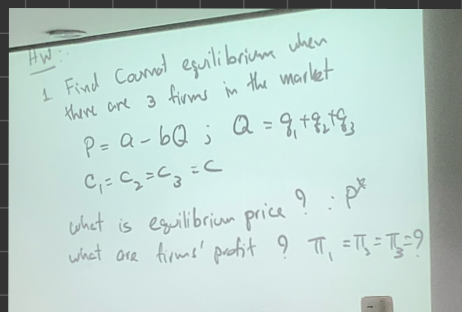 HW:
1 Find Cournot equilibrium when
there are 3 firms in the market
P = a - bQ ; Q = q₁+q₂+q₃
C₁ = C₂ = C₃ = C
what is equilibrium price ? : P*
what are firms' profit ? π₁ = π₂ = π₃ = ?